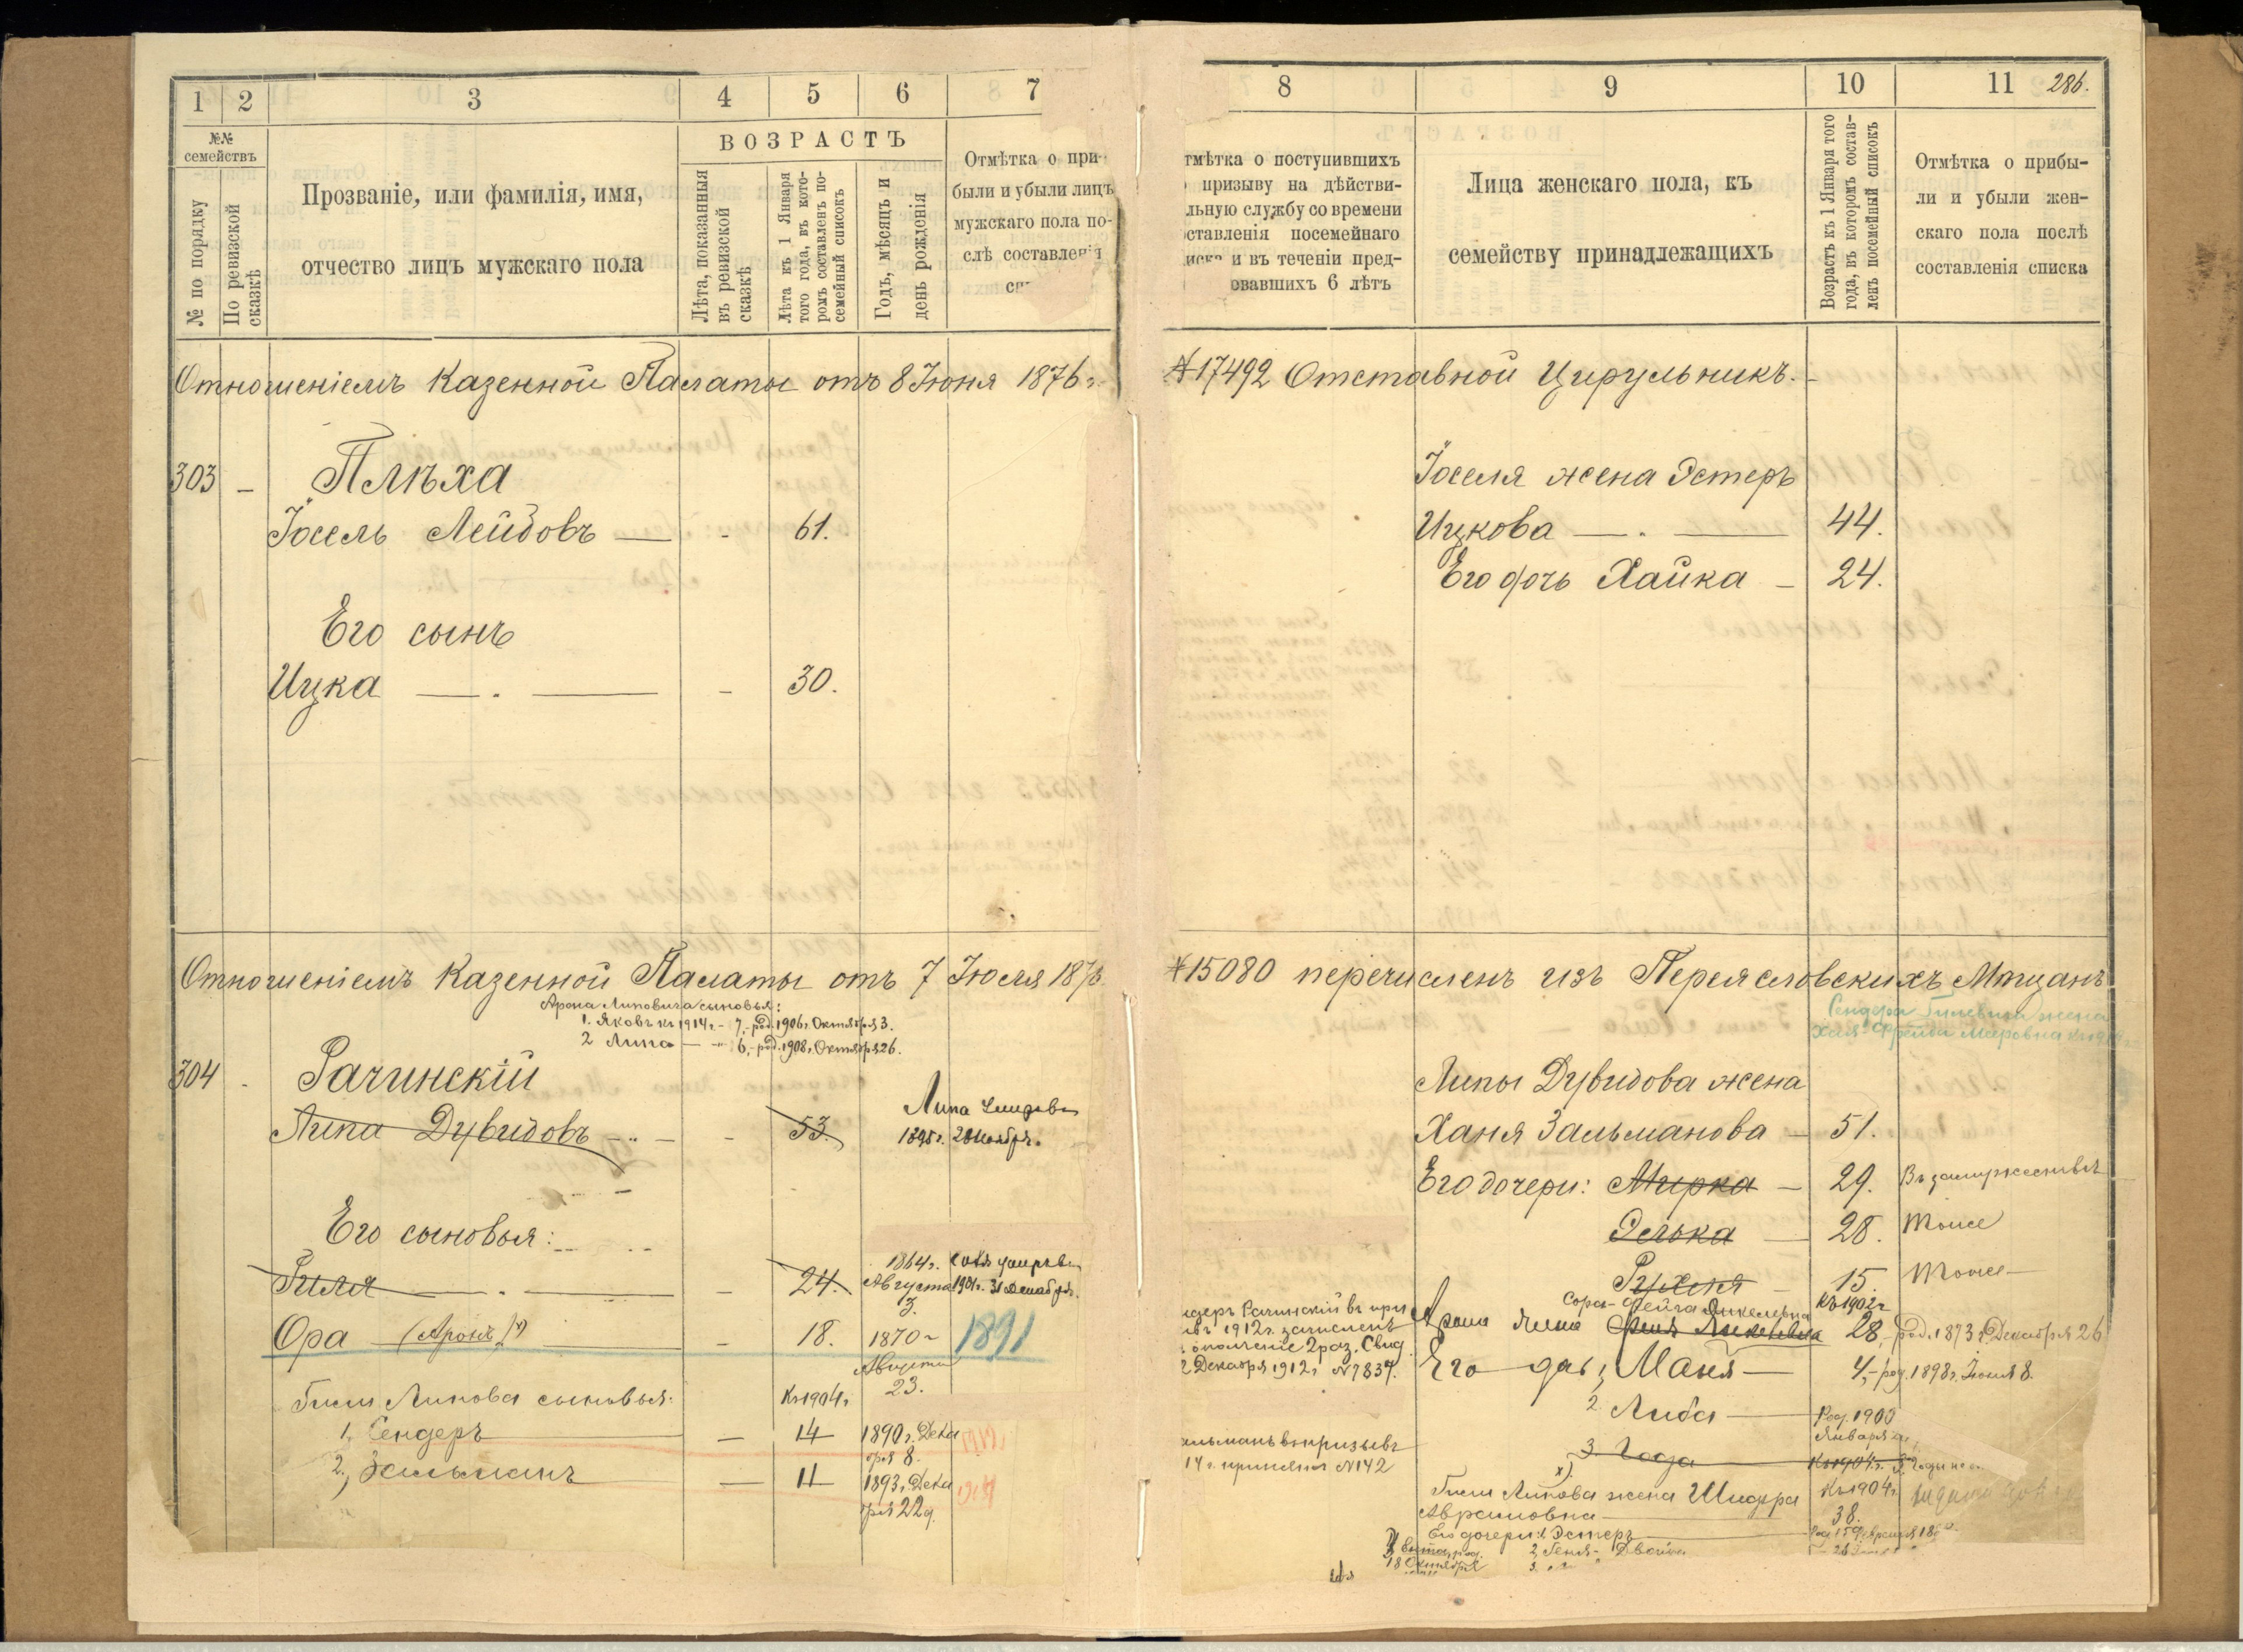 1 2 3 4 5 6 7
№№ семействъ
№ по порядку
По ревизской сказкѣ
Прозваніе, или фамилія, имя,
отчество лицъ мужскаго пола
ВОЗРАСТЪ
Лѣта, показанныя
въ ревизской
сказкѣ
Лѣта къ 1 Января
того года, въ кото-
ромъ составленъ по-
семейный списокъ
Годъ, мѣсяцъ и
день рожденія
Отмѣтка о при-
были и убыли лицъ
мужскаго пола по-
слѣ составленія
Отношеніемъ Казенной Палаты отъ 8 Іюня 1876 г.
303 – Плѣха
Іосель Лейбовъ — - 61.
Его сынъ
Ицка — . — - 30.
Отношеніемъ Казенной Палаты отъ 7 Іюля 187
Арона Липовича сыновья:
1. Яковъ къ 1914 г. - 7,- род. 1906 г. Октября 3.
2 Липа — " 6,- род. 1908 г. Октября 26.
304 - Рачинскій
Липа Дувидовъ - 53.
Липа умеръ
1895 г. 28 Ноября.
Его сыновья:
Гиля — . — - 24. 1864 г. Августа 3.
1901 г. 31 Декабря.
Ора — (Аронъ) — - 18. 1870 г. Августа 23. 1891
Гиля Липова сыновья: - Къ 1904 г.
1, Сендеръ — 14 1890 г. Дека
бря 8.
2, Зальманъ — 11 1893 г. Дека
бря 22 д. 1914
8 9 10 11 286.
тмѣтка о поступившихъ
призыву на дѣйстви-
льную службу со времени
ставленія посемейнаго
и въ теченіи пред-
овавшихъ 6 лѣтъ
Лица женскаго пола, къ
семейству принадлежащихъ
Возрастъ къ 1 Января того
года, въ которомъ состав-
ленъ посемейный списокъ
Отмѣтка о прибы-
ли и убыли жен-
скаго пола послѣ
составленія списка
№17492 Отставной Цирульникъ.
Іоселя жена Эстеръ
Ицкова — . — 44.
Его дочь Хайка – 24.
№15080 перечисленъ изъ Переясловскихъ Мѣщанъ
Сендера Гилевича жена
Хая-Фрейда Меировна къ 19
Липы Дувидова жена
Ханя Зальманова – 51.
Его дочери: Мирка – 29. Въ замужествѣ
Элька — 28. Тоже
Рухля – 15. Тоже
Сора-Фейга Янкелевна Къ 1902 г.
Арона жена Фейга Янкелевна 28,- род. 1873 г. Декабря 26
деръ Рачинскій въ при
въ 1912 г. зачисленъ
ополченіе 2 раз. Свид
2 Декабря 1912 г. №7837.
Его доч 1, Маня — 4,- род. 1898 г. Іюня 8.
2. Либа — Род. 1900
Января
3. Года — Къ 1904 г.
альманъ въ призывъ
14 г. принятъ №142
Гили Липова жена Шифра Къ 1904 г.
Аврамовна — 38.
Его дочери: 1. Эстеръ — Род 15 Февраля 18
2, Геня - Двойра
18 Октября
3.